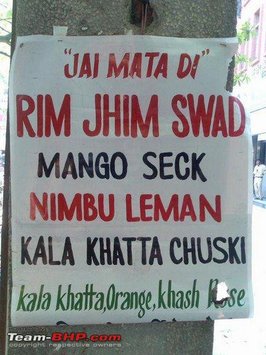 "JAI MATA DI"
RIM JHIM SWAD
MANGO SECK
NIMBU LEMAN
KALA KHATTA CHUSKI
kala khatta, Orange, khash Rose
Team-BHP.com
copyright respective owners